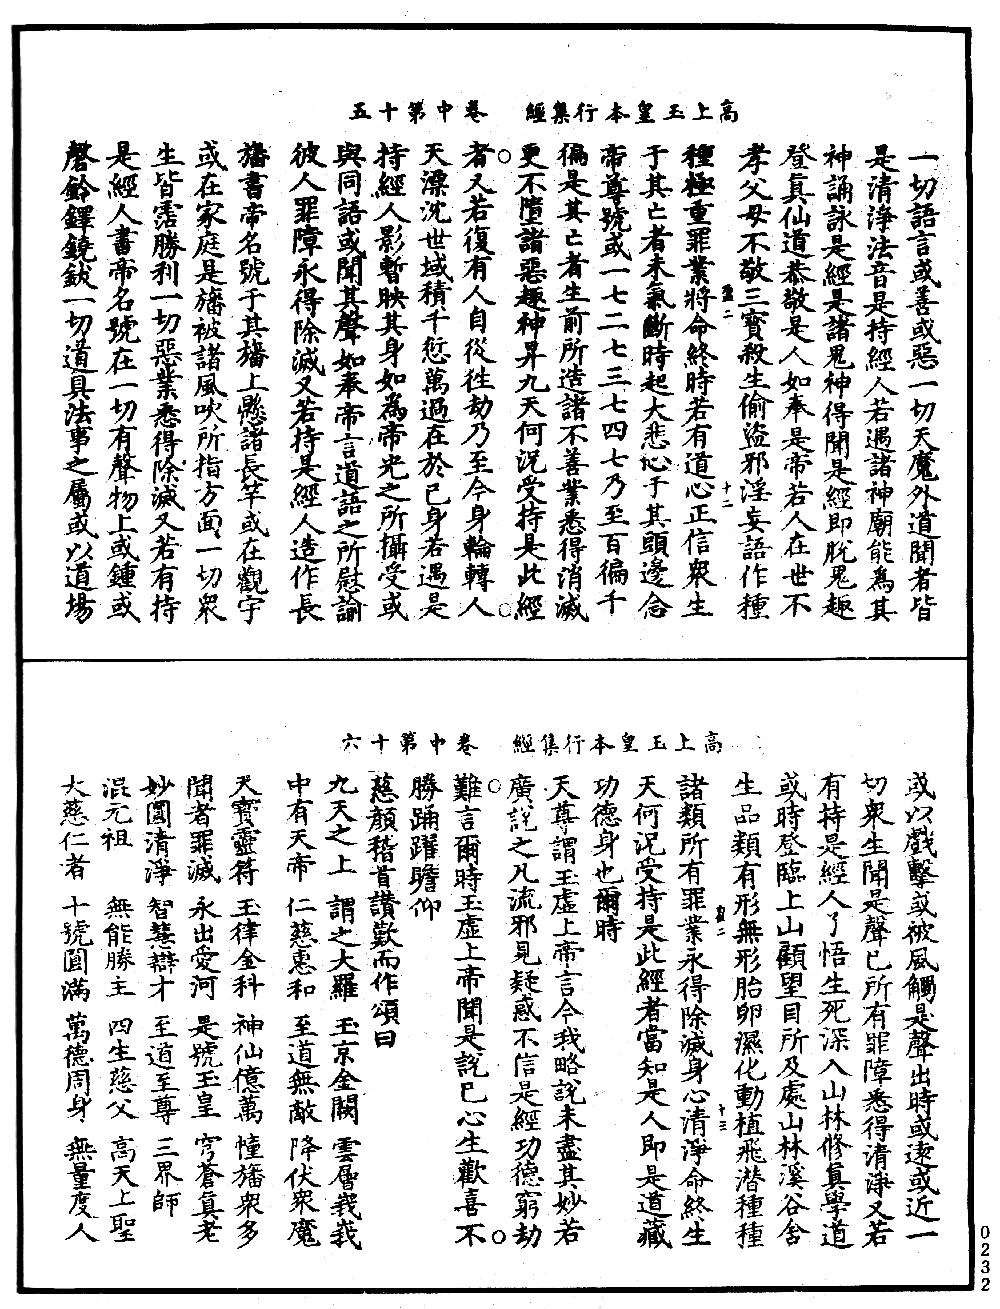 高上玉皇本行集經　卷中第十五
一切語言或善或惡一切天魔外道聞者皆
是清淨法音是持經人若遇諸神廟能為其
神誦詠是經是諸鬼神得聞是經即脫鬼趣
登真仙道恭敬是人如奉是帝若人在世不
孝父母不敬三寶殺生偷盜邪淫妄語作種
種極重罪業將命終時若有道心正信眾生
于其亡者未氣斷時起大悲心于其頭邊念
帝尊號或一七二七三七四七乃至百徧千
徧是其亡者生前所造諸不善業悉得消滅
更不墮諸惡趣神昇九天何況受持是此經
者又若復有人自從徃劫乃至今身輪轉人
天漂沈世域積千愆萬過在於已身若遇是
持經人影暫映其身如為帝光之所攝受或
與同語或聞其聲如奉帝言道語之所慰諭
彼人罪障永得除滅又若持是經人造作長
旛書帝名號于其旛上懸諸長竿或在觀宇
或在家庭是旛被諸風吹所指方面一切眾
生皆霑勝利一切惡業悉得除滅又若有持
是經人書帝名號在一切有聲物上或鍾或
磬鈴鐸鐃鈸一切道具法事之屬或以道場
高上玉皇本行集經　卷中第十六
或以戲擊或被風觸是聲出時或遠或近一
切眾生聞是聲已所有罪障悉得清淨又若
有持是經人了悟生死深入山林修真學道
或時登臨上山顧望目所及處山林溪谷含
生品類有形無形胎卵濕化動植飛潛種種
諸類所有罪業永得除滅身心清淨命終生
天何況受持是此經者當知是人即是道藏
功德身也爾時
天尊謂玉虛上帝言今我略說未盡其妙若
廣說之凡流邪見疑惑不信是經功德窮劫
難言爾時玉虛上帝聞是說已心生歡喜不
勝踊躍瞻仰
慈顏稽首讚歎而作頌曰
九天之上　謂之大羅　玉京金闕　雲層峩峩
中有天帝　仁慈惠和　至道無敵　降伏眾魔
天寶靈符　玉律金科　神仙億萬　幢旛眾多
聞者罪滅　永出愛河　是號玉皇　穹蒼真老
妙圓清淨　智慧辯才　至道至尊　三界師
混元祖　無能勝主　四生慈父　高天上聖
大慈仁者　十號圓滿　萬德周身　無量度人
0232